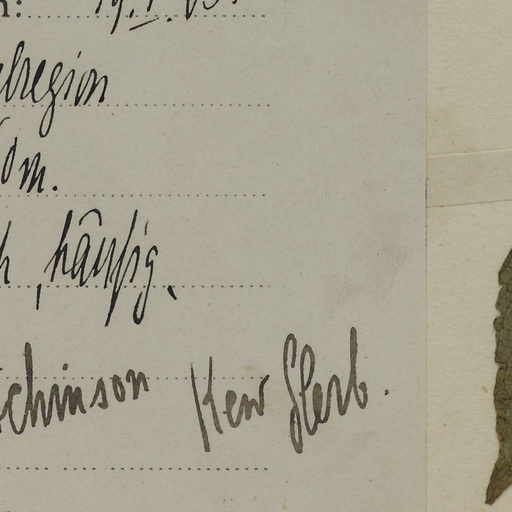 19.I.05.
elregion
0m.
h, häufig,
tchinson Kew Herb.